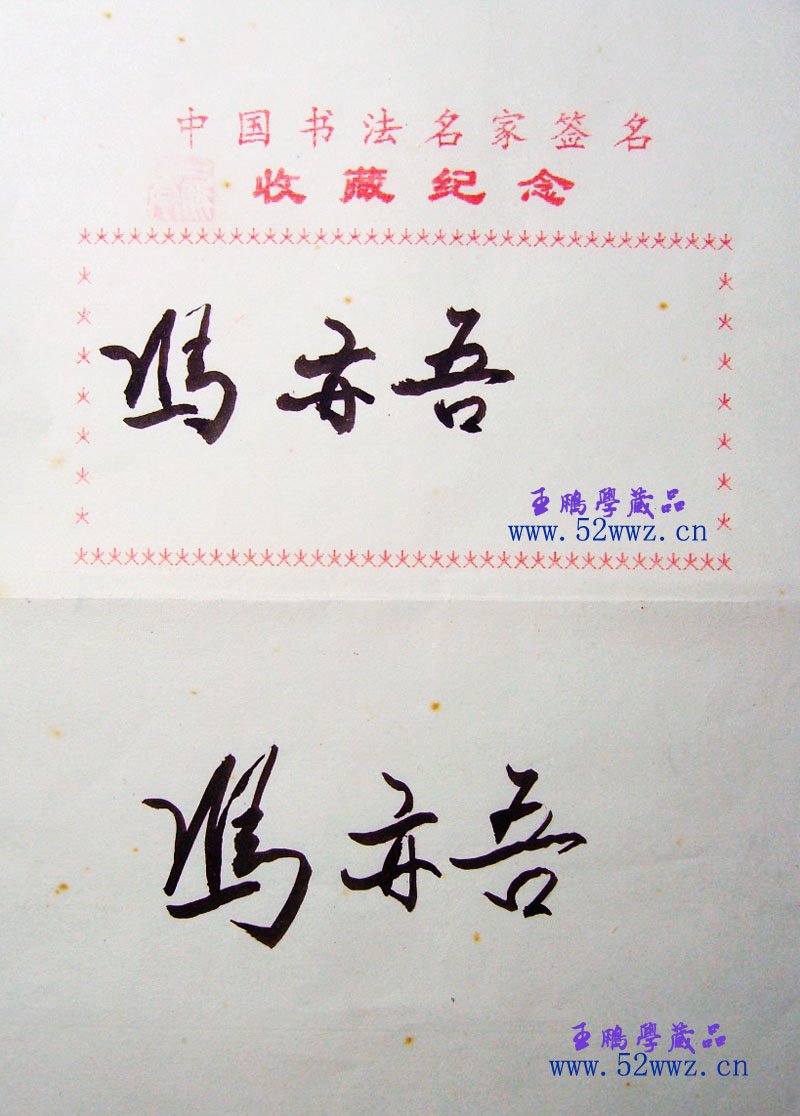 中国书法名家签名
收藏纪念
馮亦吾
王鵬學藏品
www.52wwz.cn
馮亦吾
王鵬學藏品
www.52wwz.cn